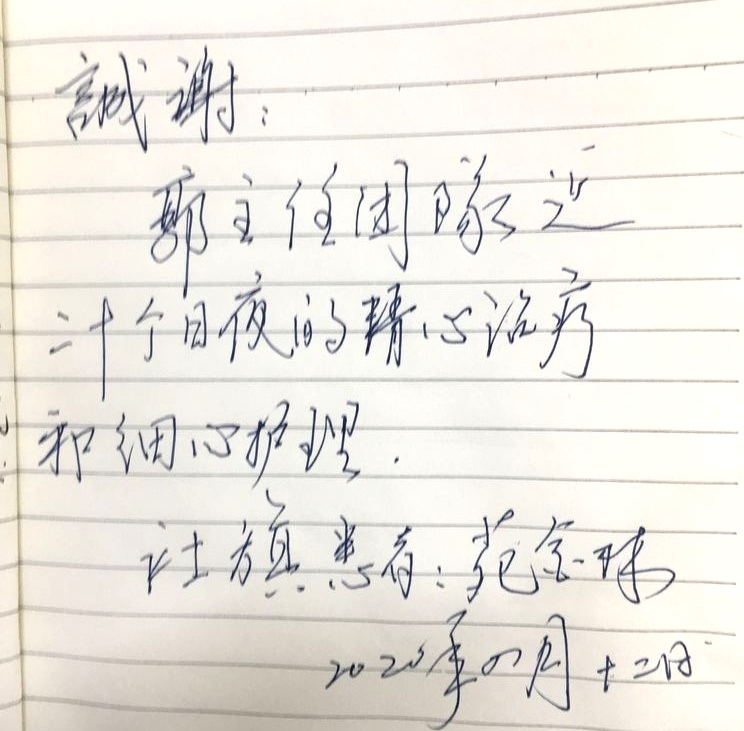 誠謝：
郭主任团队近
二十个日夜的精心治疗
和细心护理.
社旗患者：范金珠
2020年四月十二日